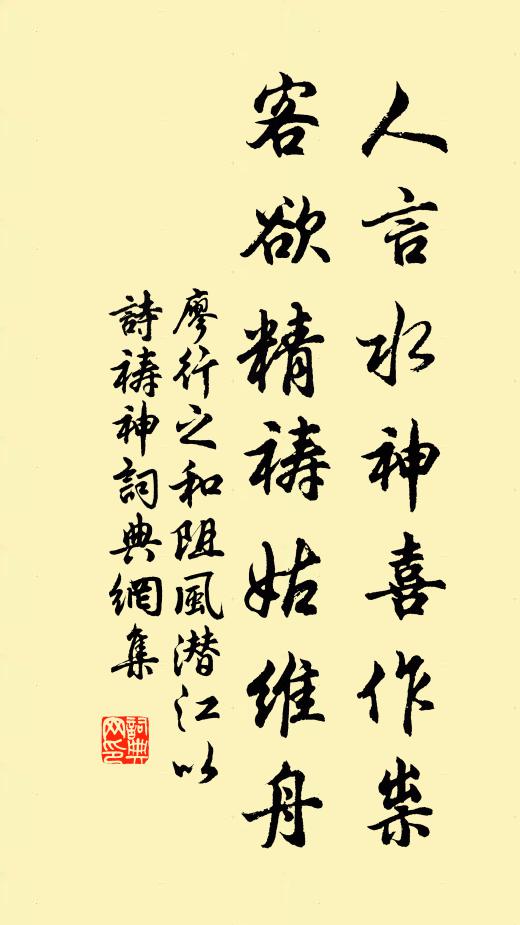 人言水神喜作祟
客欲精禱姑維舟
廖行之和阻風潜江以
詩禱神詞典網集
詞典网印